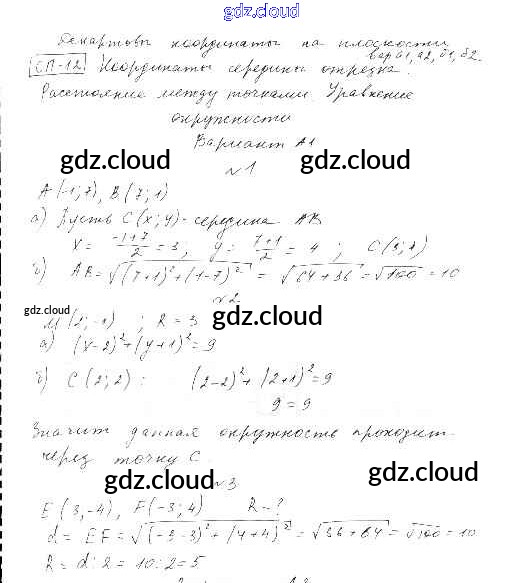 gdz.cloud
Декартовы координаты на плоскости
вар а1, а2, б1, б2.
СП-12 Координаты середины отрезка.
Расстояние между точками. Уравнение
окружности
Вариант А1
gdz.cloud gdz.cloud
№1
A(-1; 7), B(7; 1)
а) Пусть C(x; y) - середина AB
x = (-1+7)/2 = 3; y = (7+1)/2 = 4;
б) AB = √((7+1)² + (1-7)²) = √(64+36) = √100 = 10
№2
gdz.cloud gdz.cloud gdz.cloud
M(2; -1) ; R = 3
а) (x-2)² + (y+1)² = 9
б) C(2; 2): (2-2)² + (2+1)² = 9
9 = 9
Значит данная окружность проходит
через точку C.
gdz.cloud gdz.cloud
№3
E(3, -4), F(-3; 4) R - ?
d = EF = √((-3-3)² + (4+4)²) = √(36+64) = √100 = 10
R = d : 2 = 10 : 2 = 5
gdz.cloud